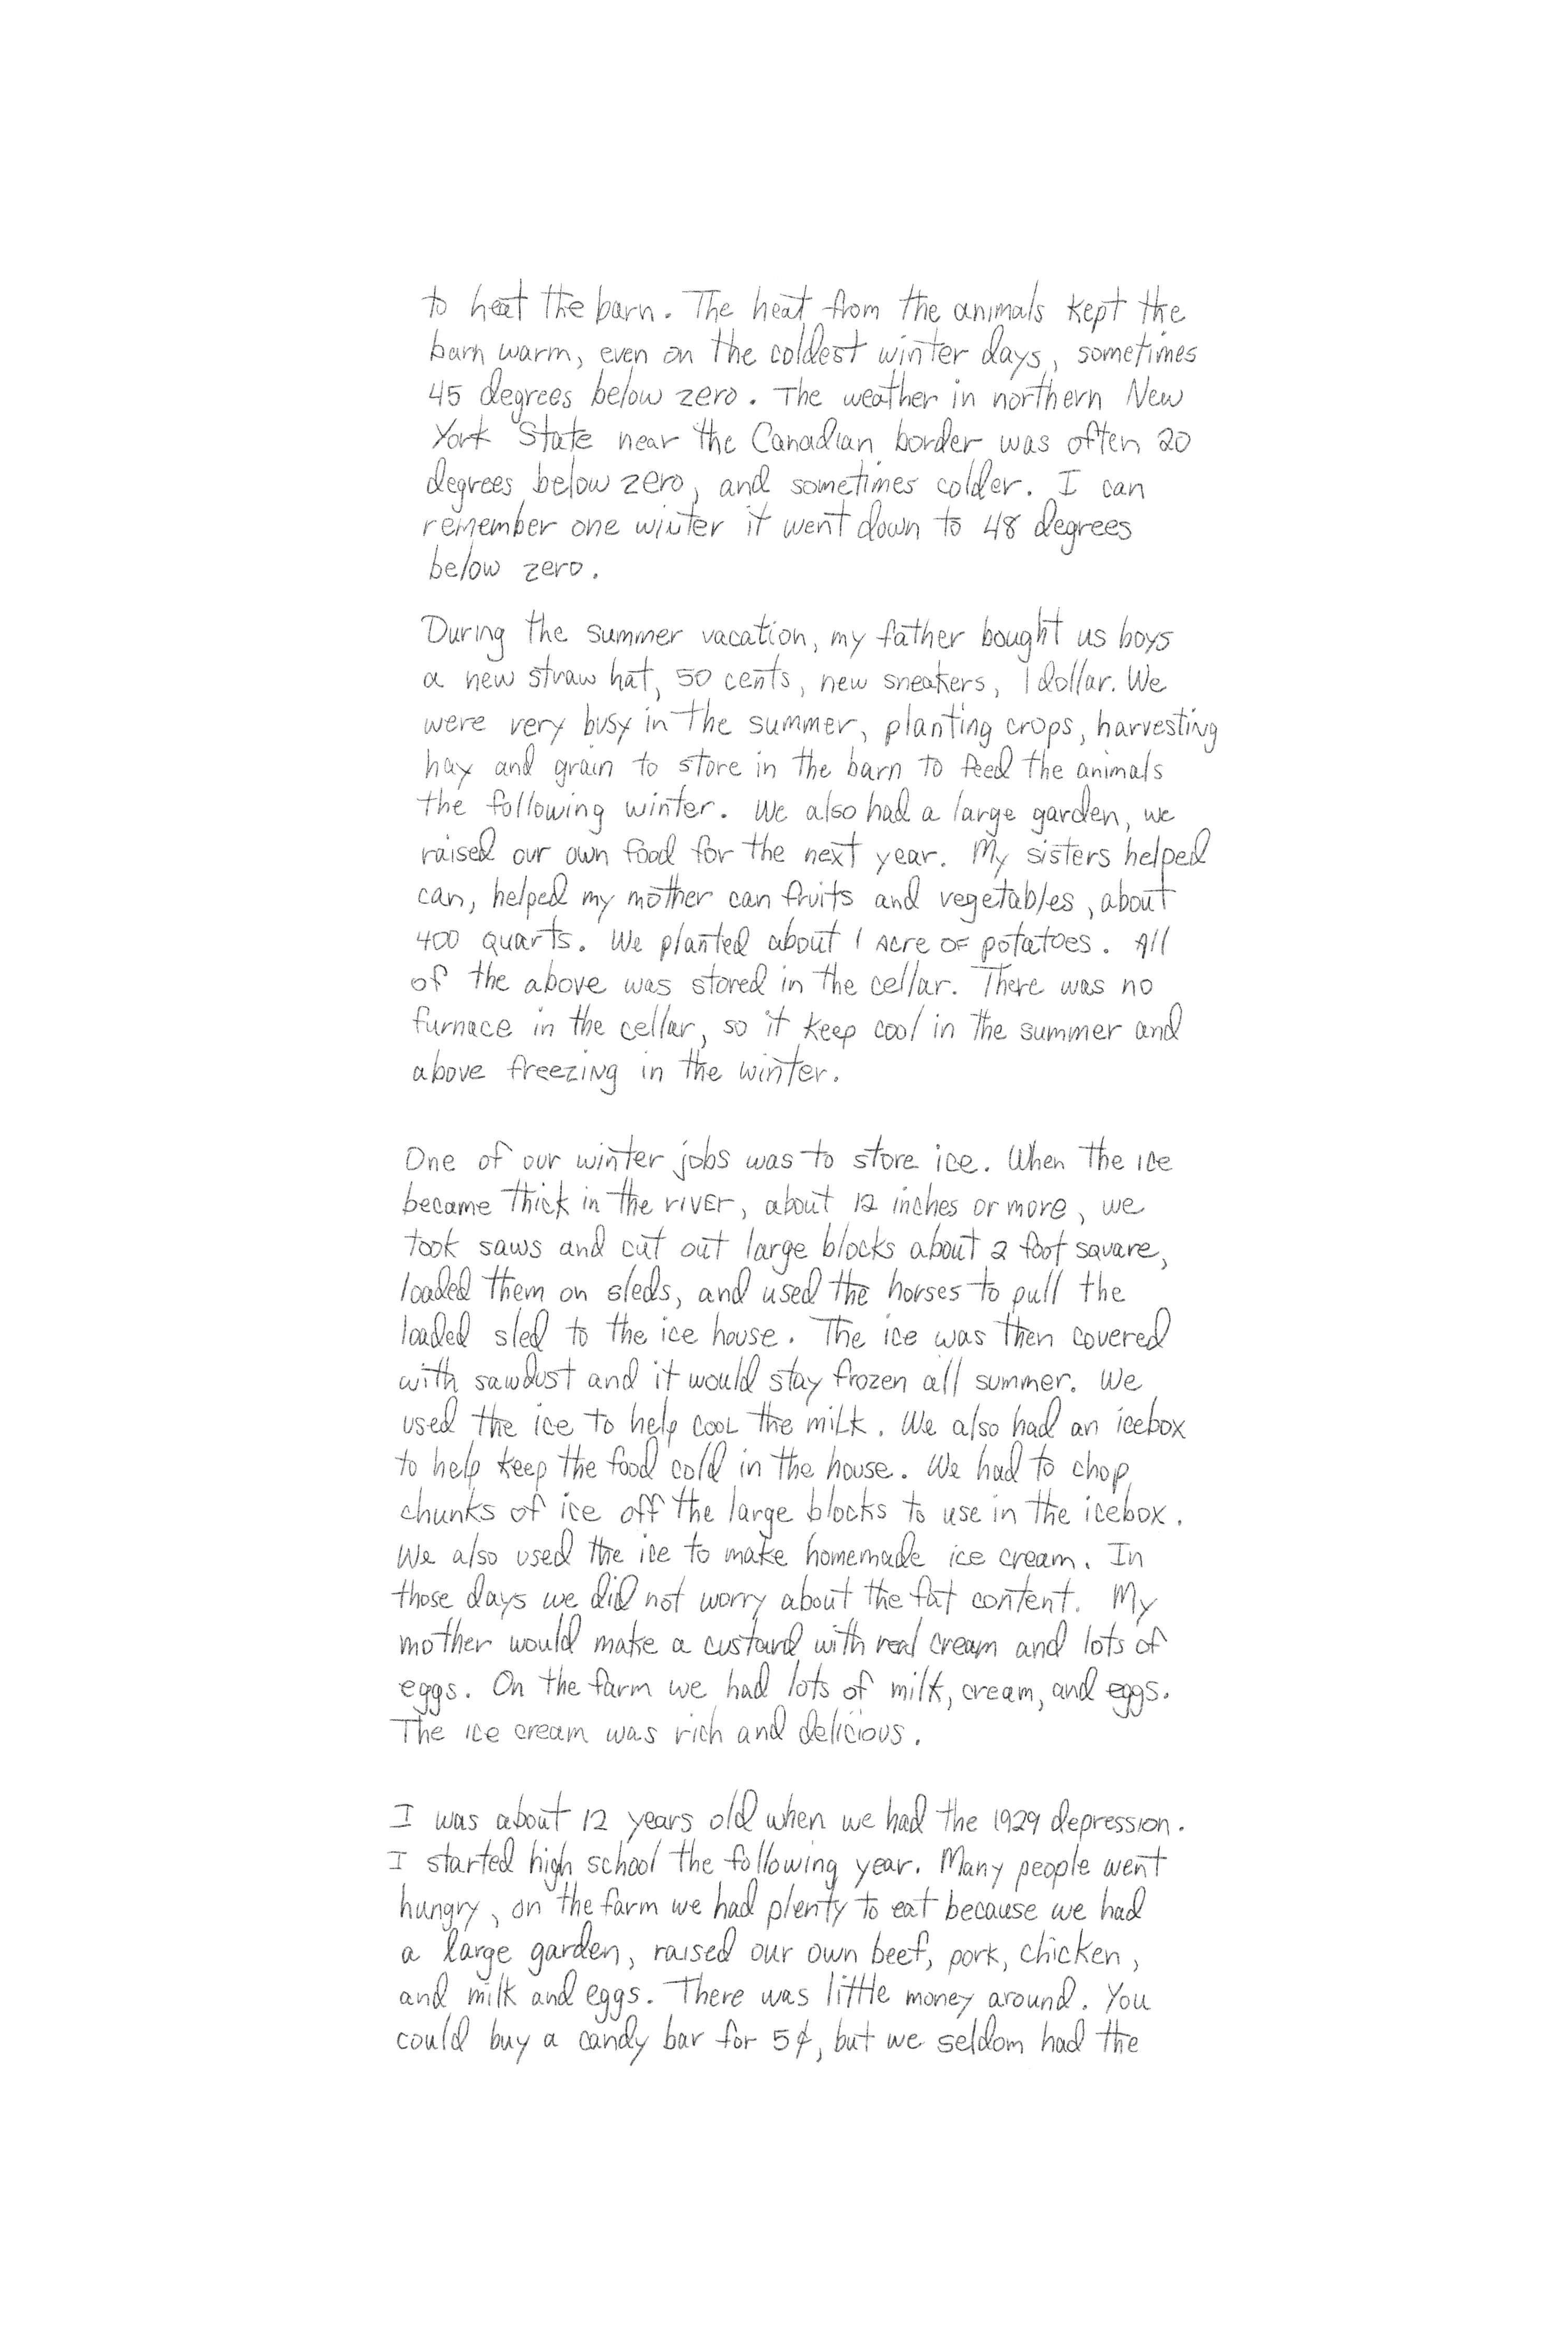 to heat the barn. The heat from the animals kept the
barn warm, even on the coldest winter days, sometimes
45 degrees below zero. The weather in northern New
York State near the Canadian border was often 20
degrees below zero, and sometimes colder. I can
remember one winter it went down to 48 degrees
below zero.
During the summer vacation, my father bought us boys
a new straw hat, 50 cents, new sneakers, 1 dollar. We
were very busy in the summer, planting crops, harvesting
hay and grain to store in the barn to feed the animals
the following winter. We also had a large garden, we
raised our own food for the next year. My sisters helped
can, helped my mother can fruits and vegetables, about
400 quarts. We planted about 1 acre of potatoes. All
of the above was stored in the cellar. There was no
furnace in the cellar, so it keep cool in the summer and
above freezing in the winter.
One of our winter jobs was to store ice. When the ice
became thick in the river, about 12 inches or more, we
took saws and cut out large blocks about 2 foot square,
loaded them on sleds, and used the horses to pull the
loaded sled to the ice house. The ice was then covered
with sawdust and it would stay frozen all summer. We
used the ice to help cool the milk. We also had an icebox
to help keep the food cold in the house. We had to chop
chunks of ice off the large blocks to use in the icebox.
We also used the ice to make homemade ice cream. In
those days we did not worry about the fat content. My
mother would make a custard with real cream and lots of
eggs. On the farm we had lots of milk, cream, and eggs.
The ice cream was rich and delicious.
I was about 12 years old when we had the 1929 depression.
I started high school the following year. Many people went
hungry, on the farm we had plenty to eat because we had
a large garden, raised our own beef, pork, chicken,
and milk and eggs. There was little money around. You
could buy a candy bar for 5¢, but we seldom had the